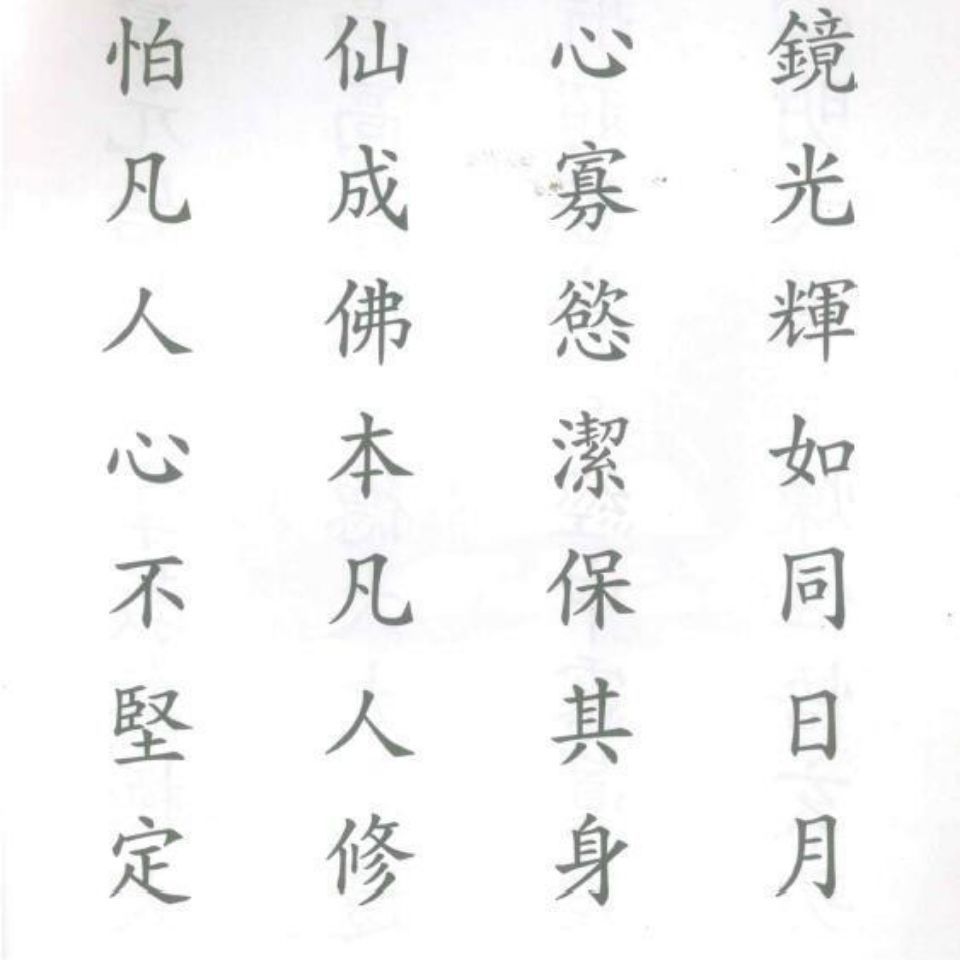 鏡光輝如同日月
心寡慾潔保其身
仙成佛本凡人修
怕凡人心不堅定